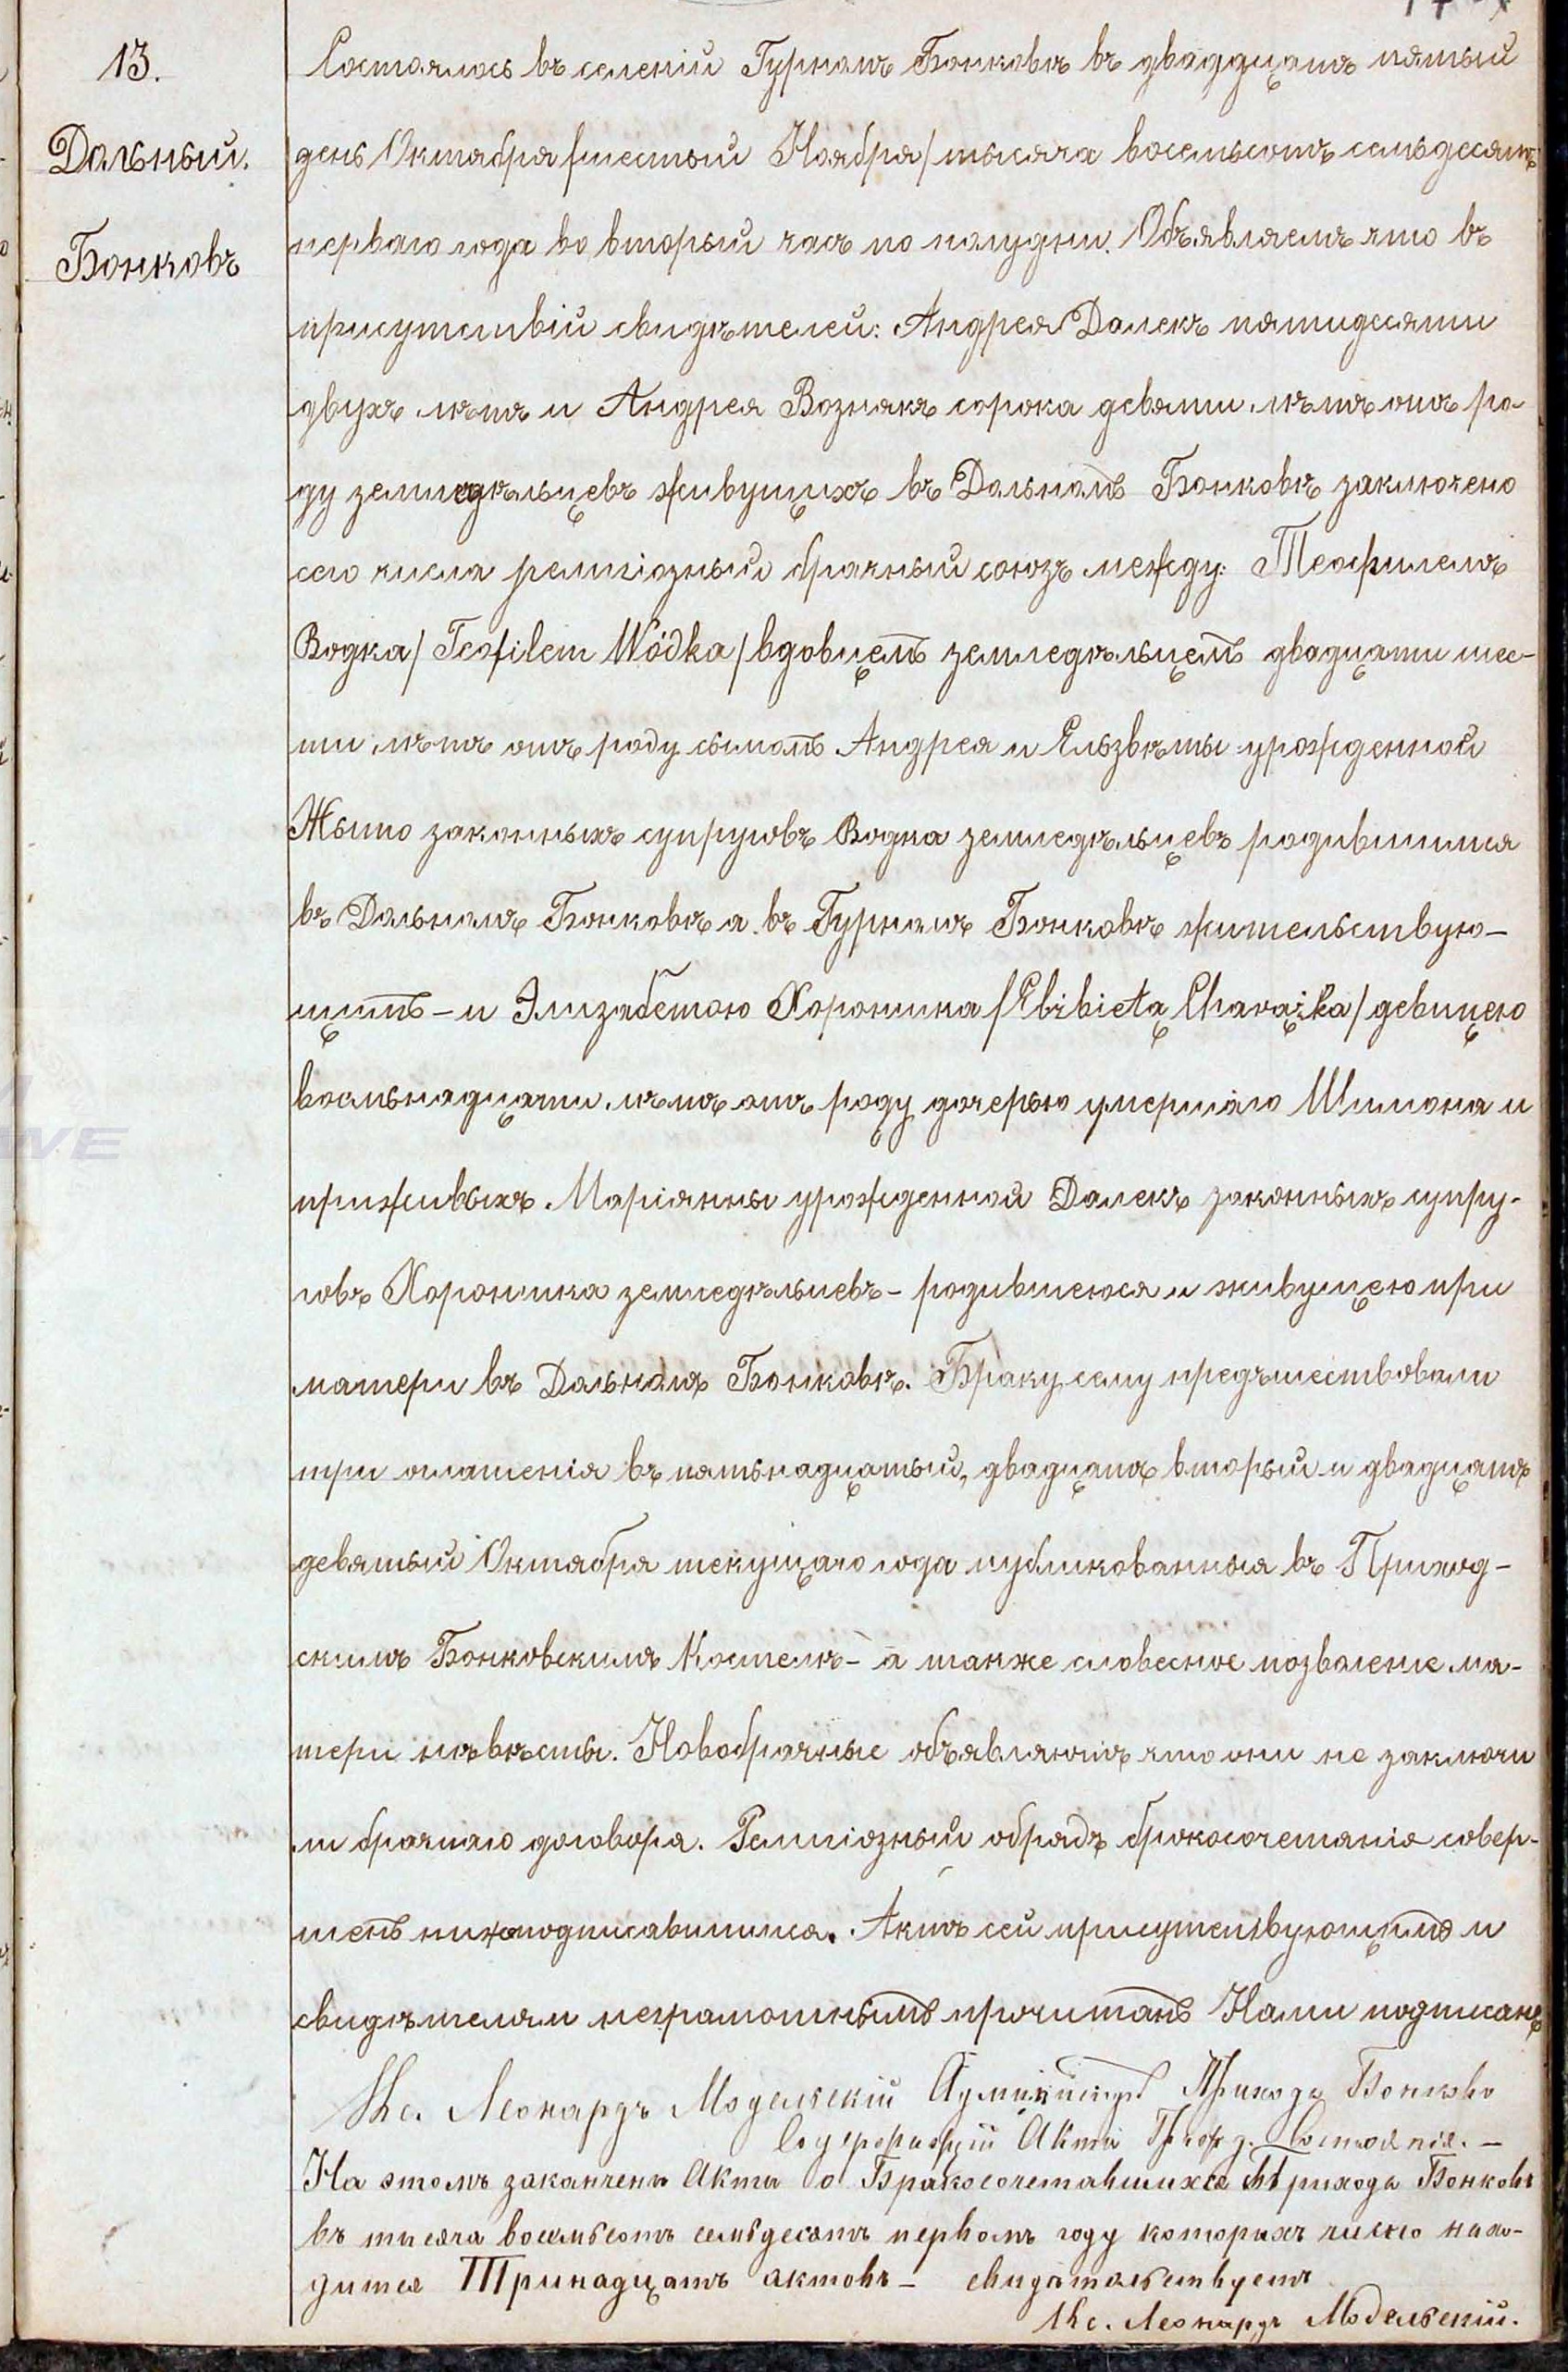 13.
Дальный.
Бонковъ
Состоялось въ селеніи Гурномъ Бонковѣ въ двадцать пятый
день Октября /шестый Ноября/ тысяча восемьсотъ семьдесятъ
перваго года во вторый часъ по полудни. Объявляемъ что въ
присутствіи свидѣтелей: Андрея Далекъ пятидесяти
двухъ лѣтъ и Андрея Вознякъ сорока девяти лѣтъ отъ ро-
ду земледѣльцевъ живущихъ въ Дальномъ Бонковѣ заключено
сего числа религіозный брачный союзъ между: Теофилемъ
Водка / Teofilem Wódka / вдовцемъ земледѣльцемъ двадцати шес-
ти лѣтъ отъ роду сыномъ Андрея и Эльзвѣты урожденной
Жыто законныхъ супруговъ Водка земледѣльцевъ родившимся
въ Дальномъ Бонковѣ а въ Гурномъ Бонковѣ жительствую-
щимъ - и Элизабетою Хоронжка / Elżbietą Charążka / девицею
восьмнадцати лѣтъ отъ роду дочерью умершаго Шимона и
приживыхъ Маріянны урожденной Далекъ законныхъ супру-
говъ Хоронжка земледѣльцевъ - родившеюся и живущею при
матери въ Дальномъ Бонковѣ. Браку сему предшествовали
три оглашенія въ пятьнадцатый, двадцать вторый и двадцать
девятый Октября текущаго года публикованныя въ Приход-
скимъ Бонковскимъ Костелѣ - а также словесное позволеніе ма-
тери невѣсты. Новобрачные объявляютъ что они не заключи
ли брачнаго договора. Религіозный обрядъ бракосочетанія совер-
шенъ нижеподписавшимся. Актъ сей присутствующимъ и
свидѣтелямъ неграмотнымъ прочитанъ Нами подписанъ
Кс. Леонардъ Модельскій Администр Прихода Бонково
Содержащій Акта Гражд. Состоянія. -
На этомъ закончены Акта о Бракосочетавшихся Прихода Бонковъ
въ тысяча восемьсотъ семьдесятъ первомъ году которыхъ число нахо-
дится Тринадцать актовъ - свидѣтельствуетъ
Кс. Леонардъ Модельскій.